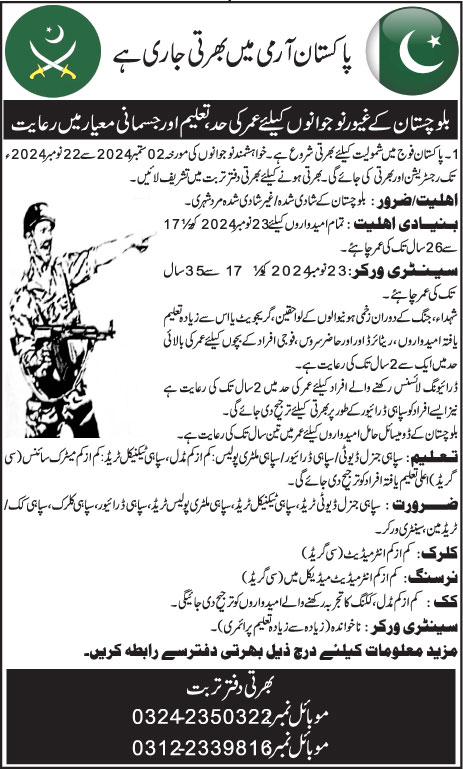 پاکستان آرمی میں بھرتی جاری ہے
بلوچستان کے غیور نوجوانوں کیلئے عمر کی حد، تعلیم اور جسمانی معیار میں رعایت
1۔ پاکستان فوج میں شمولیت کیلئے بھرتی شروع ہے۔ خواہشمند نوجوانوں کی مورخہ 02 ستمبر 2024 سے 22 نومبر 2024ء
تک رجسٹریشن اور بھرتی کی جائے گی۔ بھرتی ہونے کیلئے بھرتی دفتر تربت میں تشریف لائیں۔
اہلیت/ضرور: بلوچستان کے شادی شدہ/غیر شادی شدہ مرد شہری۔
بنیادی اہلیت: تمام امیدواروں کیلئے 23 نومبر 2024 کو ½ 17
سے 26 سال تک کی عمر چاہئے۔
سینٹری ورکر: 23 نومبر 2024 کو ½ 17 سے 35 سال
تک کی عمر چاہئے۔
شہداء، جنگ کے دوران زخمی ہونیوالوں کے لواحقین، گریجویٹ یا اس سے زیادہ تعلیم
یافتہ امیدواروں، ریٹائرڈ اور حاضر سروس، فوجی افراد کے بچوں کیلئے عمر کی بالائی
حد میں ایک سے 2 سال تک کی رعایت ہے۔
ڈرائیونگ لائسنس رکھنے والے افراد کیلئے عمر کی حد میں 2 سال تک کی رعایت ہے
نیز ایسے افراد کو سپاہی ڈرائیور کے طور پر بھرتی کیلئے ترجیح دی جائے گی۔
بلوچستان کے ڈومیسائل حامل امیدواروں کیلئے عمر میں تین سال تک کی رعایت ہے۔
تعلیم: سپاہی جنرل ڈیوٹی/سپاہی ڈرائیور/سپاہی ملٹری پولیس: کم از کم مڈل، سپاہی ٹیکنیکل ٹریڈ: کم از کم میٹرک سائنس (سی
گریڈ) اعلیٰ تعلیم یافتہ افراد کو ترجیح دی جائے گی۔
ضرورت: سپاہی جنرل ڈیوٹی ٹریڈ، سپاہی ٹیکنیکل ٹریڈ، سپاہی ملٹری پولیس ٹریڈ، سپاہی ڈرائیور، سپاہی کلرک، سپاہی کک/
ٹریڈ مین، سینٹری ورکر۔
کلرک: کم از کم انٹرمیڈیٹ (سی گریڈ)
نرسنگ: کم از کم انٹرمیڈیٹ میڈیکل میں (سی گریڈ)
کک: کم از کم مڈل، ککنگ کا تجربہ رکھنے والے امیدواروں کو ترجیح دی جائیگی۔
سینٹری ورکر: ناخواندہ (زیادہ سے زیادہ تعلیم پرائمری)۔
مزید معلومات کیلئے درج ذیل بھرتی دفتر سے رابطہ کریں۔
بھرتی دفتر تربت
موبائل نمبر 0324-2350322
موبائل نمبر 0312-2339816